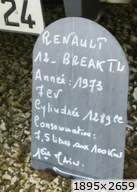 24
RENAULT
12_BREAK TL
Année: 1973
7 CV
Cylindrée 1289cc
Consommation:
7,5 litres aux 100Km
1ère Main.